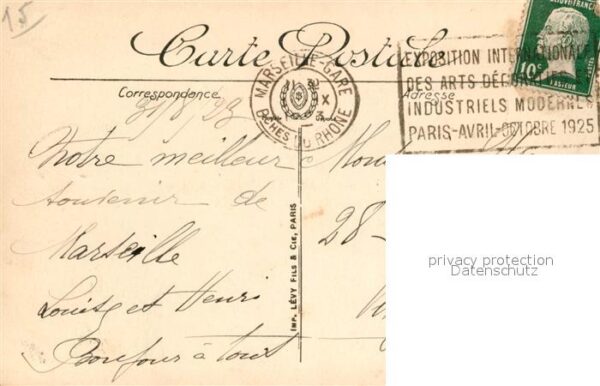 15
Carte Postale
Correspondance
Adresse
MARSEILLE-GARE
X
BCHES DU RHONE
EXPOSITION INTERNATIONALE
DES ARTS DÉCORATIFS
INDUSTRIELS MODERNES
PARIS-AVRIL-OCTOBRE 1925
10c
PASTEUR
Notre meilleur
souvenir de
Marseille
Louise et Henri
Bonjour à tous
IMP. LÉVY FILS & CIE, PARIS
28
privacy protection
Datenschutz